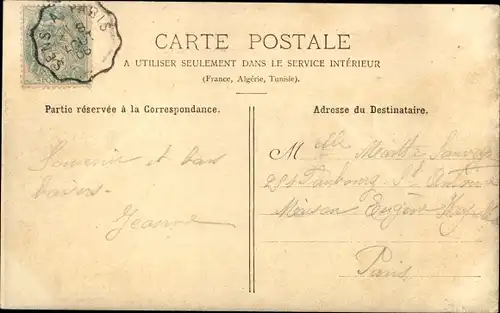 SENS A PARIS
CARTE POSTALE
A UTILISER SEULEMENT DANS LE SERVICE INTÉRIEUR
(France, Algérie, Tunisie).
Partie réservée à la Correspondance.
Adresse du Destinataire.
Souvenir et bons
baisers.
Jeanne
Melle
Faubourg St Antoine
Maison Eugène
Paris